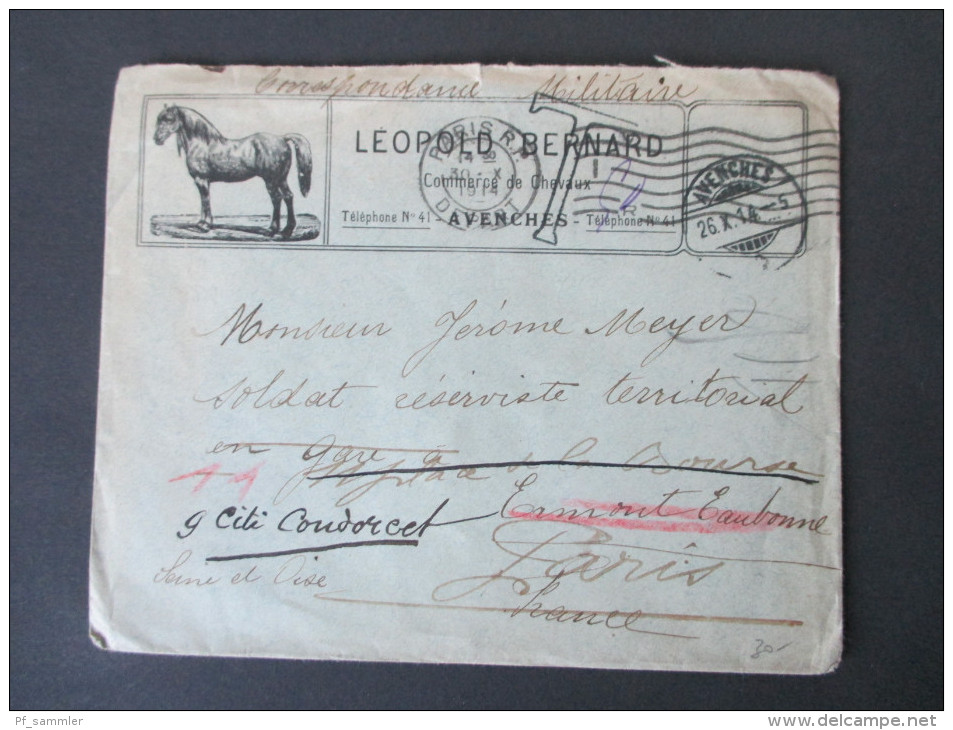 Correspondance Militaire
LÉOPOLD BERNARD
Commerce de Chevaux
Téléphone Nº 41 - AVENCHES - Téléphone Nº 41
PARIS R.P.
30 - X
1914
DEPART
T
AVENCHES
26.X.14.-5
Monsieur Jérôme Meyer
soldat réserviste territorial
en gare
de la Bourse
Ermont Eaubonne
9 Cité Condorcet
Paris
Seine et Oise
France
30-
Pf_sammler
www.delcampe.net